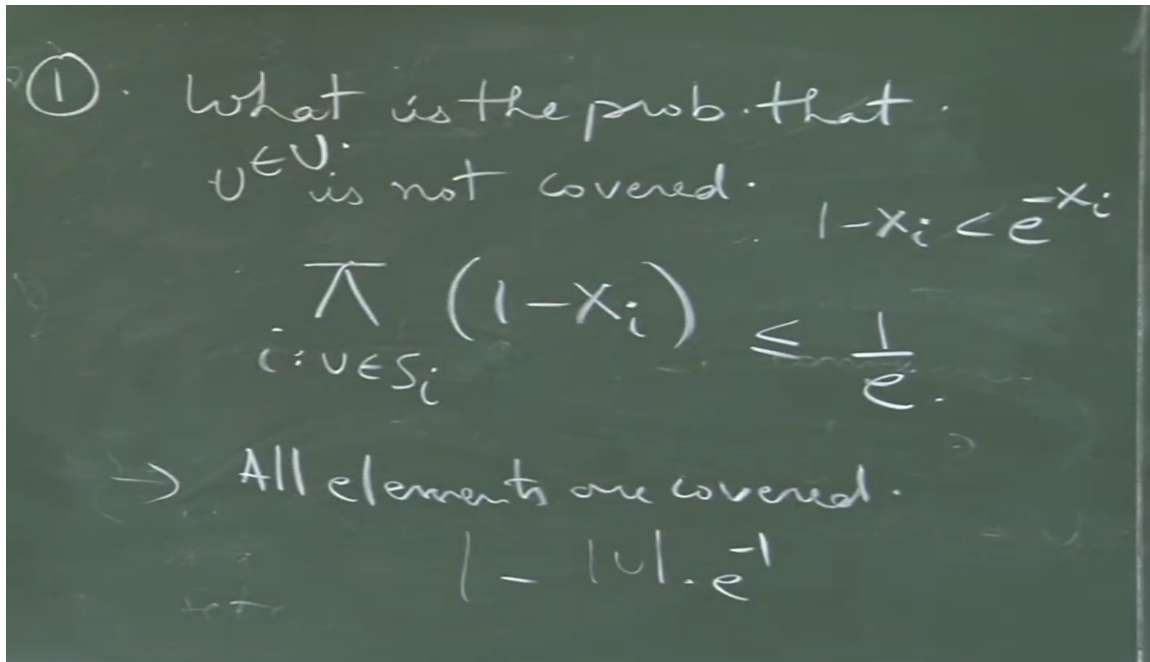 ① . What is the prob. that .
υ ∈ U .
is not covered .
1 - x_i < e^{-x_i}
π (1 - x_i) ≤ 1/e .
i : υ ∈ S_i
→ All elements are covered .
1 - |U| . e^{-1}